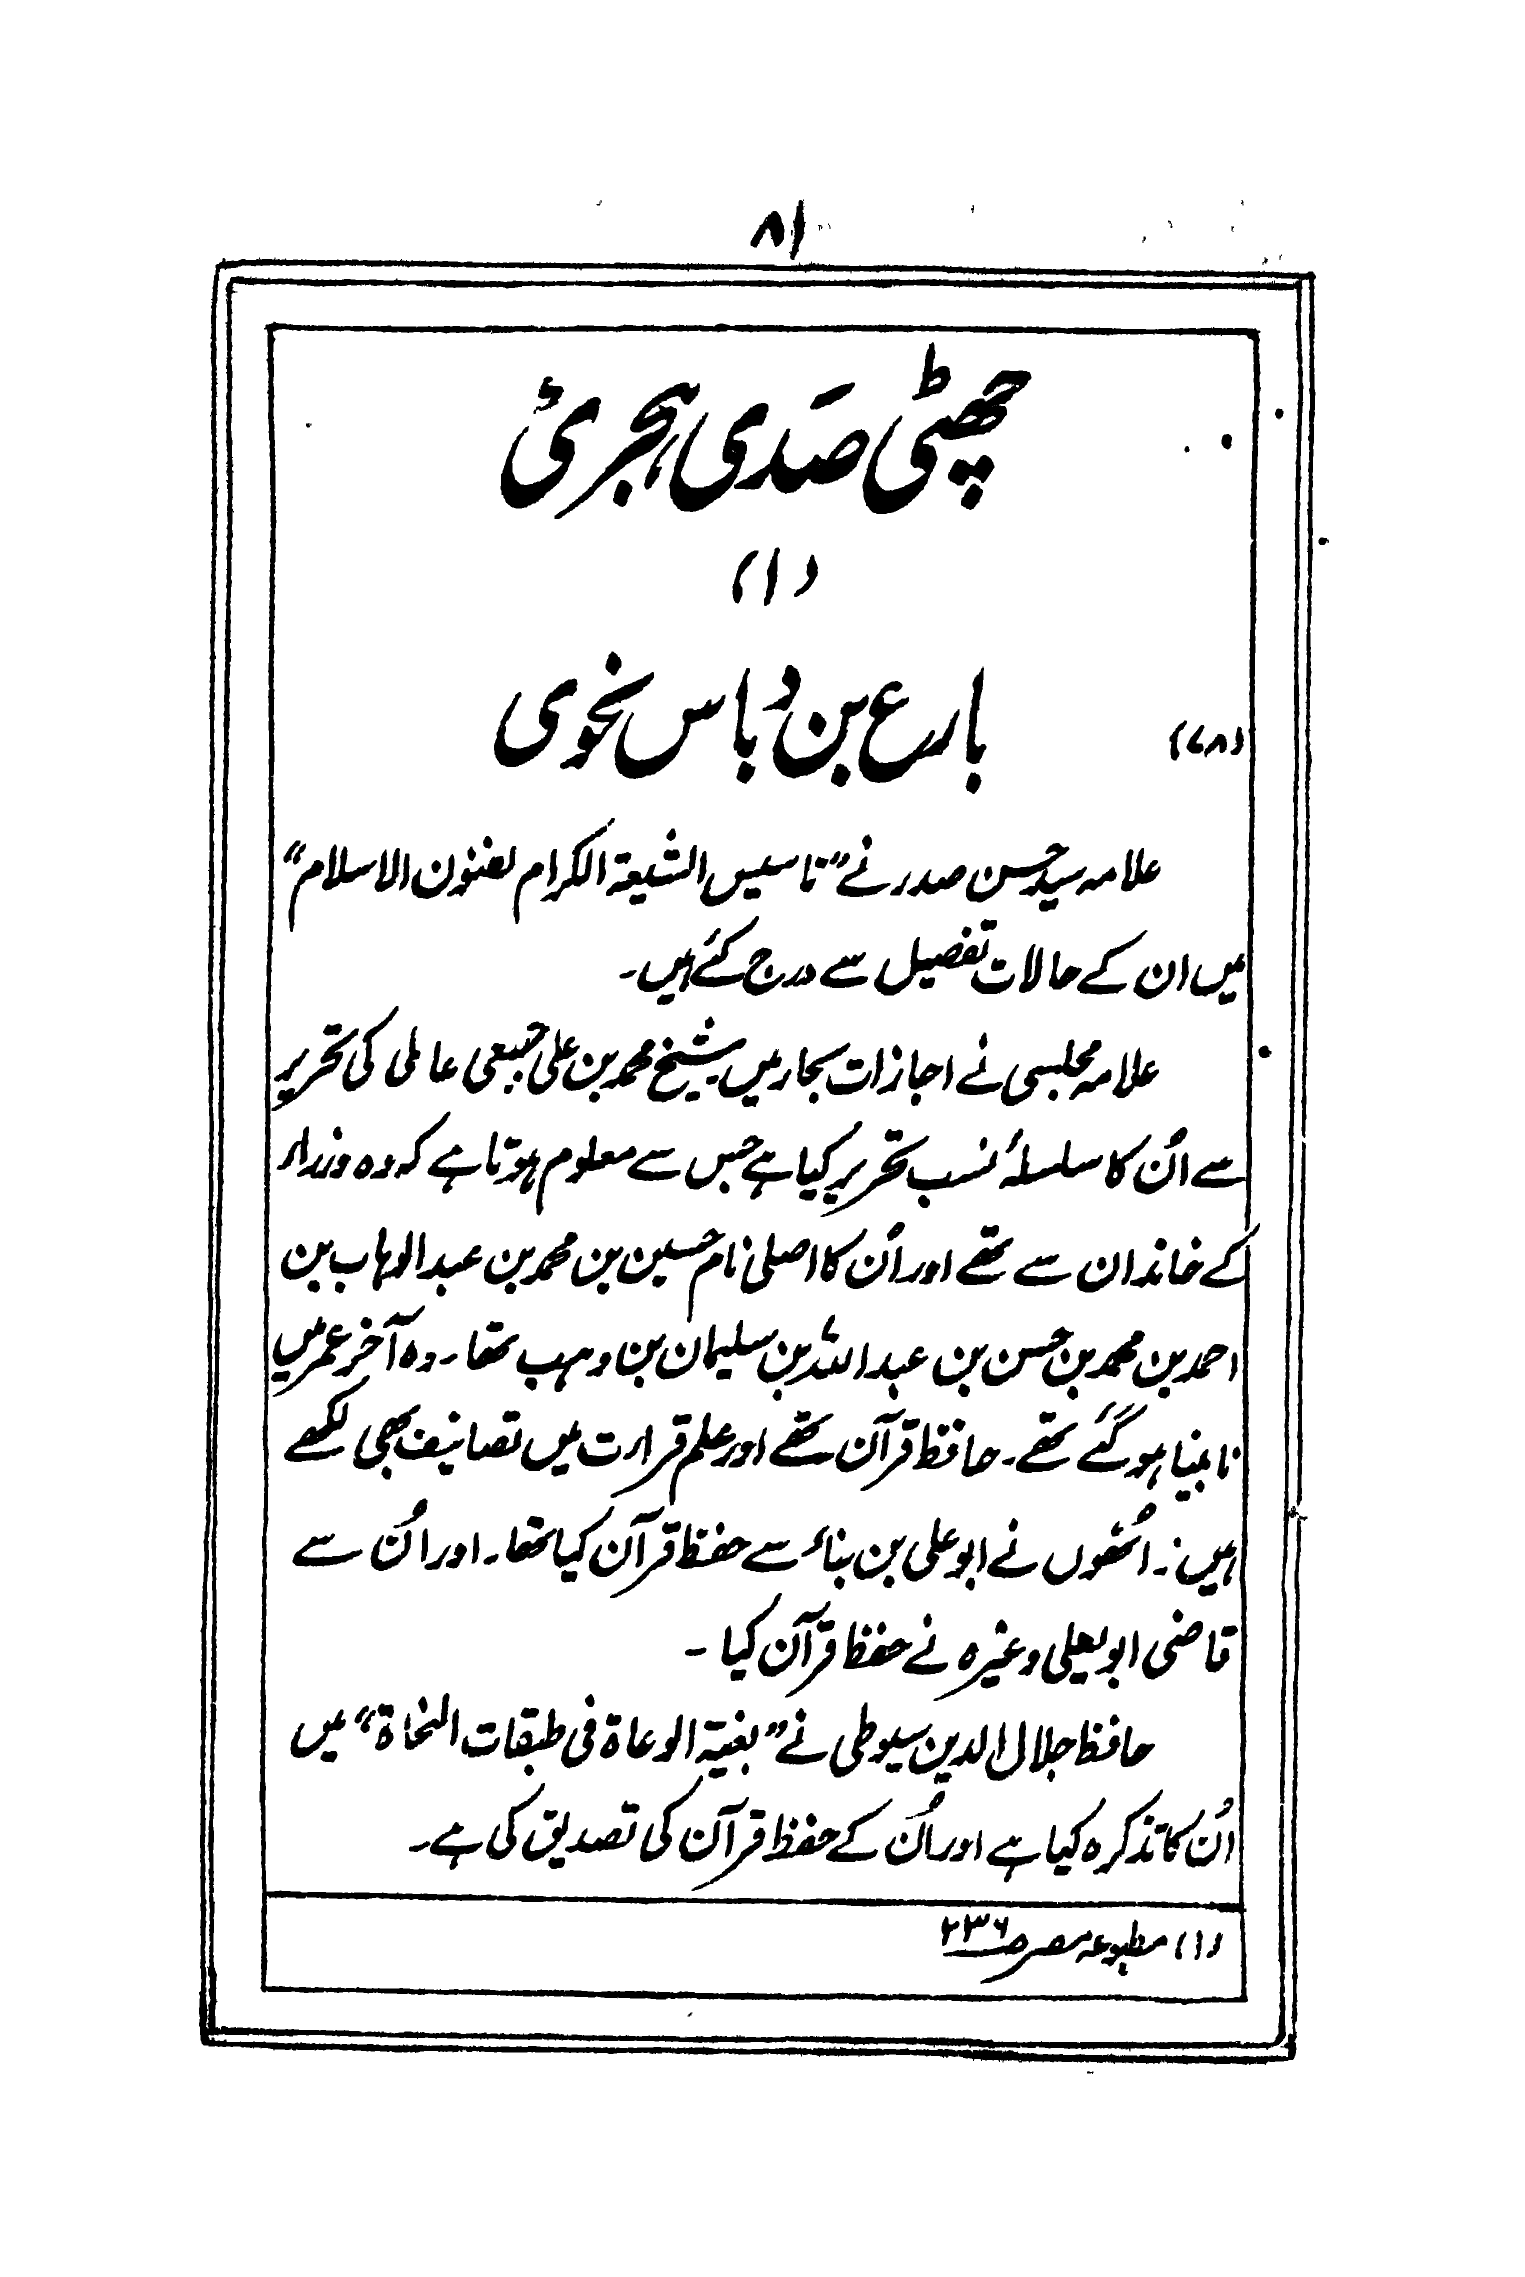 ۸۱
چھٹی صدی ہجری
(۱)
(۷۸) بارع بن دباس نحوی
علامہ سید حسن صدر نے "تاسیس الشیعۃ الکرام لفنون الاسلام"
میں ان کے حالات تفصیل سے درج کئے ہیں۔
علامہ مجلسی نے اجازات بحار میں شیخ محمد بن علی جبعی عاملی کی تحریر
سے اُن کا سلسلۂ نسب تحریر کیا ہے جس سے معلوم ہوتا ہے کہ وہ وزراء
کے خاندان سے تھے اور اُن کا اصلی نام حسین بن محمد بن عبدالوہاب بن
احمد بن محمد بن حسن بن عبداللہ بن سلیمان بن وہب تھا۔ وہ آخر عمر میں
نابینا ہو گئے تھے۔ حافظ قرآن تھے اور علم قراءت میں تصانیف بھی لکھے
ہیں۔ اُنھوں نے ابو علی بن بناء سے حفظ قرآن کیا تھا۔ اور اُن سے
قاضی ابو یعلی وغیرہ نے حفظ قرآن کیا ۔
حافظ جلال الدین سیوطی نے "بغیۃ الوعاۃ فی طبقات النحاۃ" میں
اُن کا تذکرہ کیا ہے اور اُن کے حفظ قرآن کی تصدیق کی ہے۔
(۱) مطبوعہ مصر صـ ۲۳۶